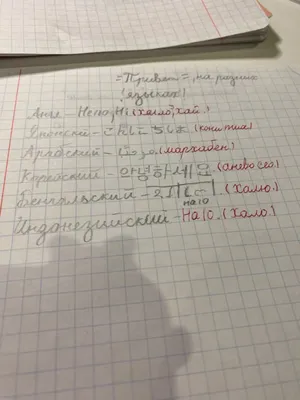 = Привет =, на разных
(языках)
Англ - Hello, Hi (хелло, хай)
Японский - こんにちは (конитива)
Арабский - (мархабен)
Корейский - 안녕하세요 (анево сео)
Бенгальский - (Халю)
Индонезийский - Halo. (Хало)